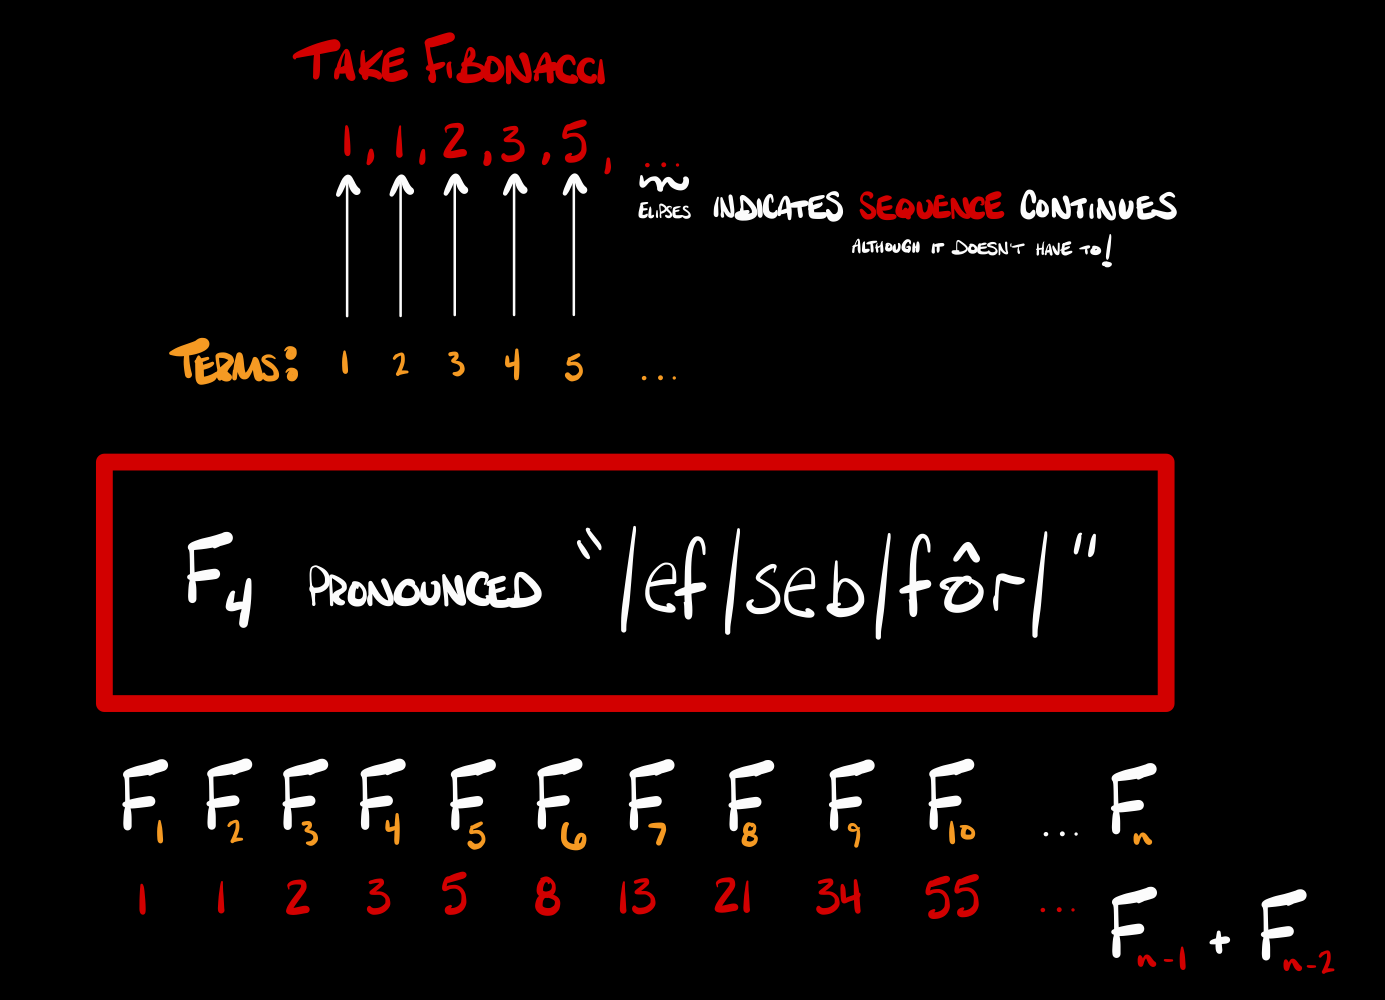 TAKE FIBONACCI
1, 1, 2, 3, 5, ...
ELIPSES INDICATES SEQUENCE CONTINUES
ALTHOUGH IT DOESN'T HAVE TO!
TERMS: 1 2 3 4 5 ...
F₄ PRONOUNCED "/ef/seb/fôr/"
F₁ F₂ F₃ F₄ F₅ F₆ F₇ F₈ F₉ F₁₀ ... Fₙ
1 1 2 3 5 8 13 21 34 55 ... Fₙ₋₁ + Fₙ₋₂